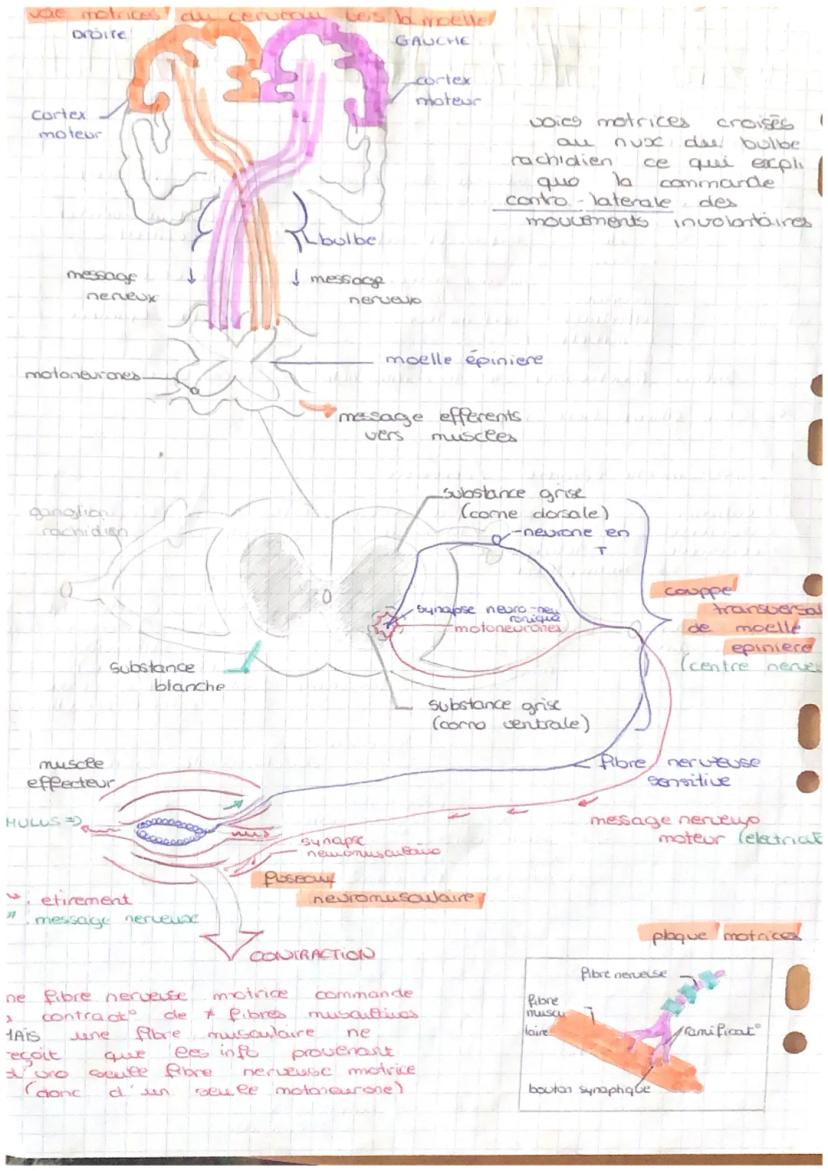 voie motrices du cerveau vers la moelle
DROITE
GAUCHE
cortex
moteur
cortex
moteur
voies motrices croisés
au nux du bulbe
rachidien ce qui expli
que la commande
contro-laterale des
mouvements involontaires
bulbe
message
nerveux
message
nerveux
moelle épiniere
motoneurones
message efferents
vers muscles
substance grise
(corne dorsale)
ganglion
rachidien
neurone en
T
synapse neuro-neu
ronique
motoneurones
couppe
transversal
de moelle
epiniere
(centre nerveu
substance
blanche
substance grise
(corne ventrale)
muscle
effecteur
fibre nerveuse
sensitive
MULUS =>
message nerveux
moteur (electriqu
synapse
neuromusculaire
fuseau
neuromusculaire
: etirement
: message nerveux
plaque motrices
CONTRACTION
ne fibre nerveuse motrice commande
contract° de ≠ fibres musculaires
MAIS une fibre musculaire ne
reçoit que les inf° provenant
d'une seule fibre nerveuse motrice
(donc d'un seule motoneurone)
fibre nerveuse
fibre
muscu
laire
ramificat°
bouton synaptique